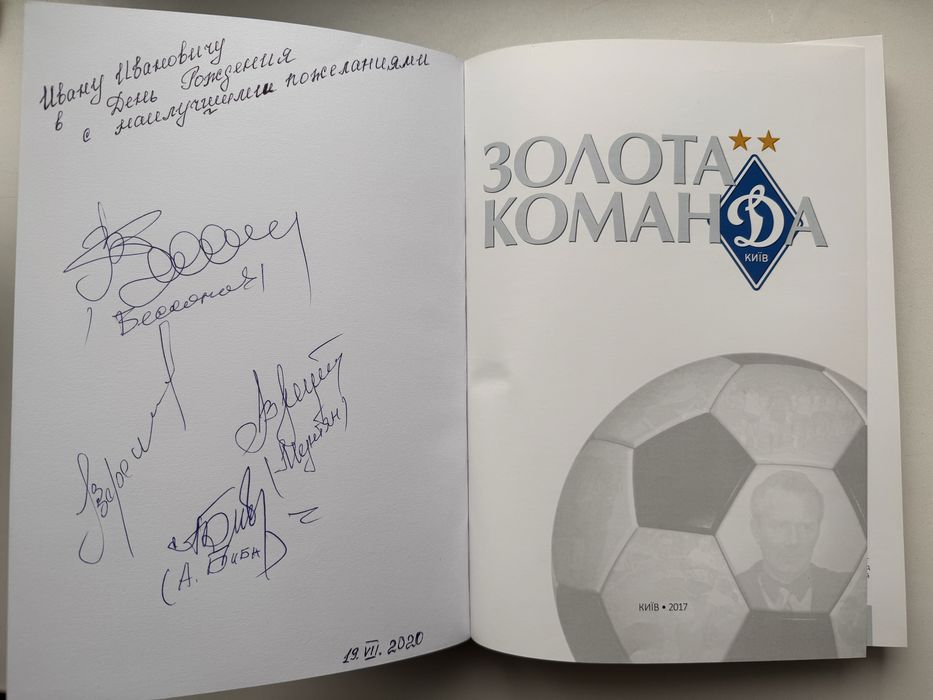 Ивану Ивановичу
в День Рождения
с наилучшими пожеланиями
(Бессонов)
(А. Биба)
19.VII.2020
ЗОЛОТА
КОМАНДА
КИЇВ
КИЇВ • 2017